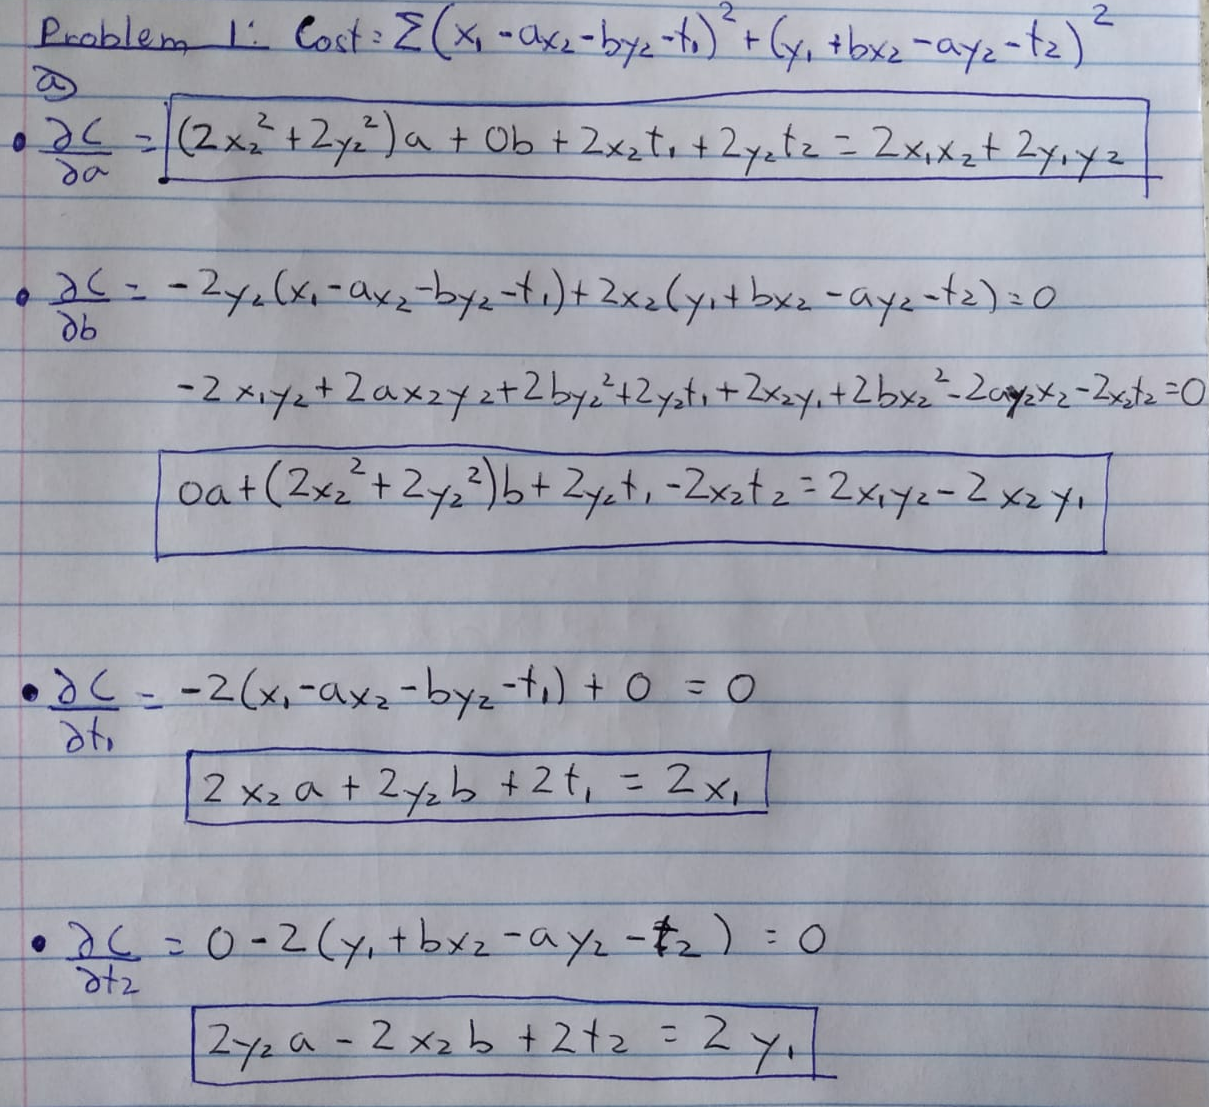 Problem 1: Cost = Σ(x₁ - ax₂ - by₂ - t₁)² + (y₁ + bx₂ - ay₂ - t₂)²
a)
• ∂C/∂a = (2x₂² + 2y₂²)a + 0b + 2x₂t₁ + 2y₂t₂ = 2x₁x₂ + 2y₁y₂
• ∂C/∂b = -2y₂(x₁ - ax₂ - by₂ - t₁) + 2x₂(y₁ + bx₂ - ay₂ - t₂) = 0
-2x₁y₂ + 2ax₂y₂ + 2by₂² + 2y₂t₁ + 2x₂y₁ + 2bx₂² - 2ay₂x₂ - 2x₂t₂ = 0
0a + (2x₂² + 2y₂²)b + 2y₂t₁ - 2x₂t₂ = 2x₁y₂ - 2x₂y₁
• ∂C/∂t₁ = -2(x₁ - ax₂ - by₂ - t₁) + 0 = 0
2x₂a + 2y₂b + 2t₁ = 2x₁
• ∂C/∂t₂ = 0 - 2(y₁ + bx₂ - ay₂ - t₂) = 0
2y₂a - 2x₂b + 2t₂ = 2y₁